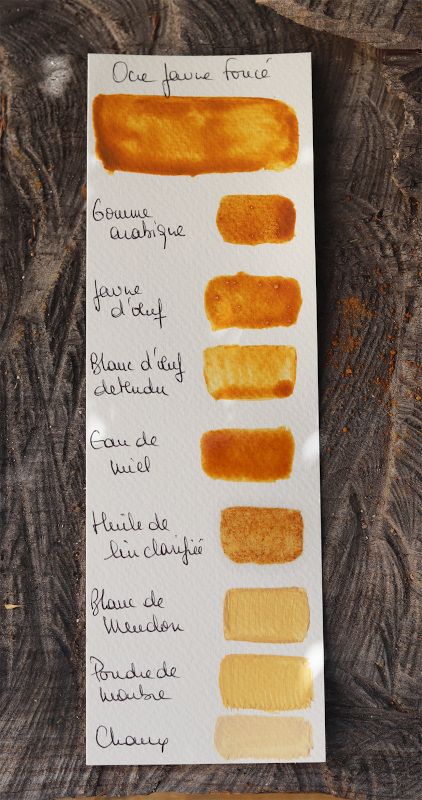 Ocre jaune foncé
Gomme
arabique
Jaune
d'œuf
Blanc d'œuf
détendu
Eau de
miel
Huile de
lin clarifiée
Blanc de
Meudon
Poudre de
marbre
Chaux